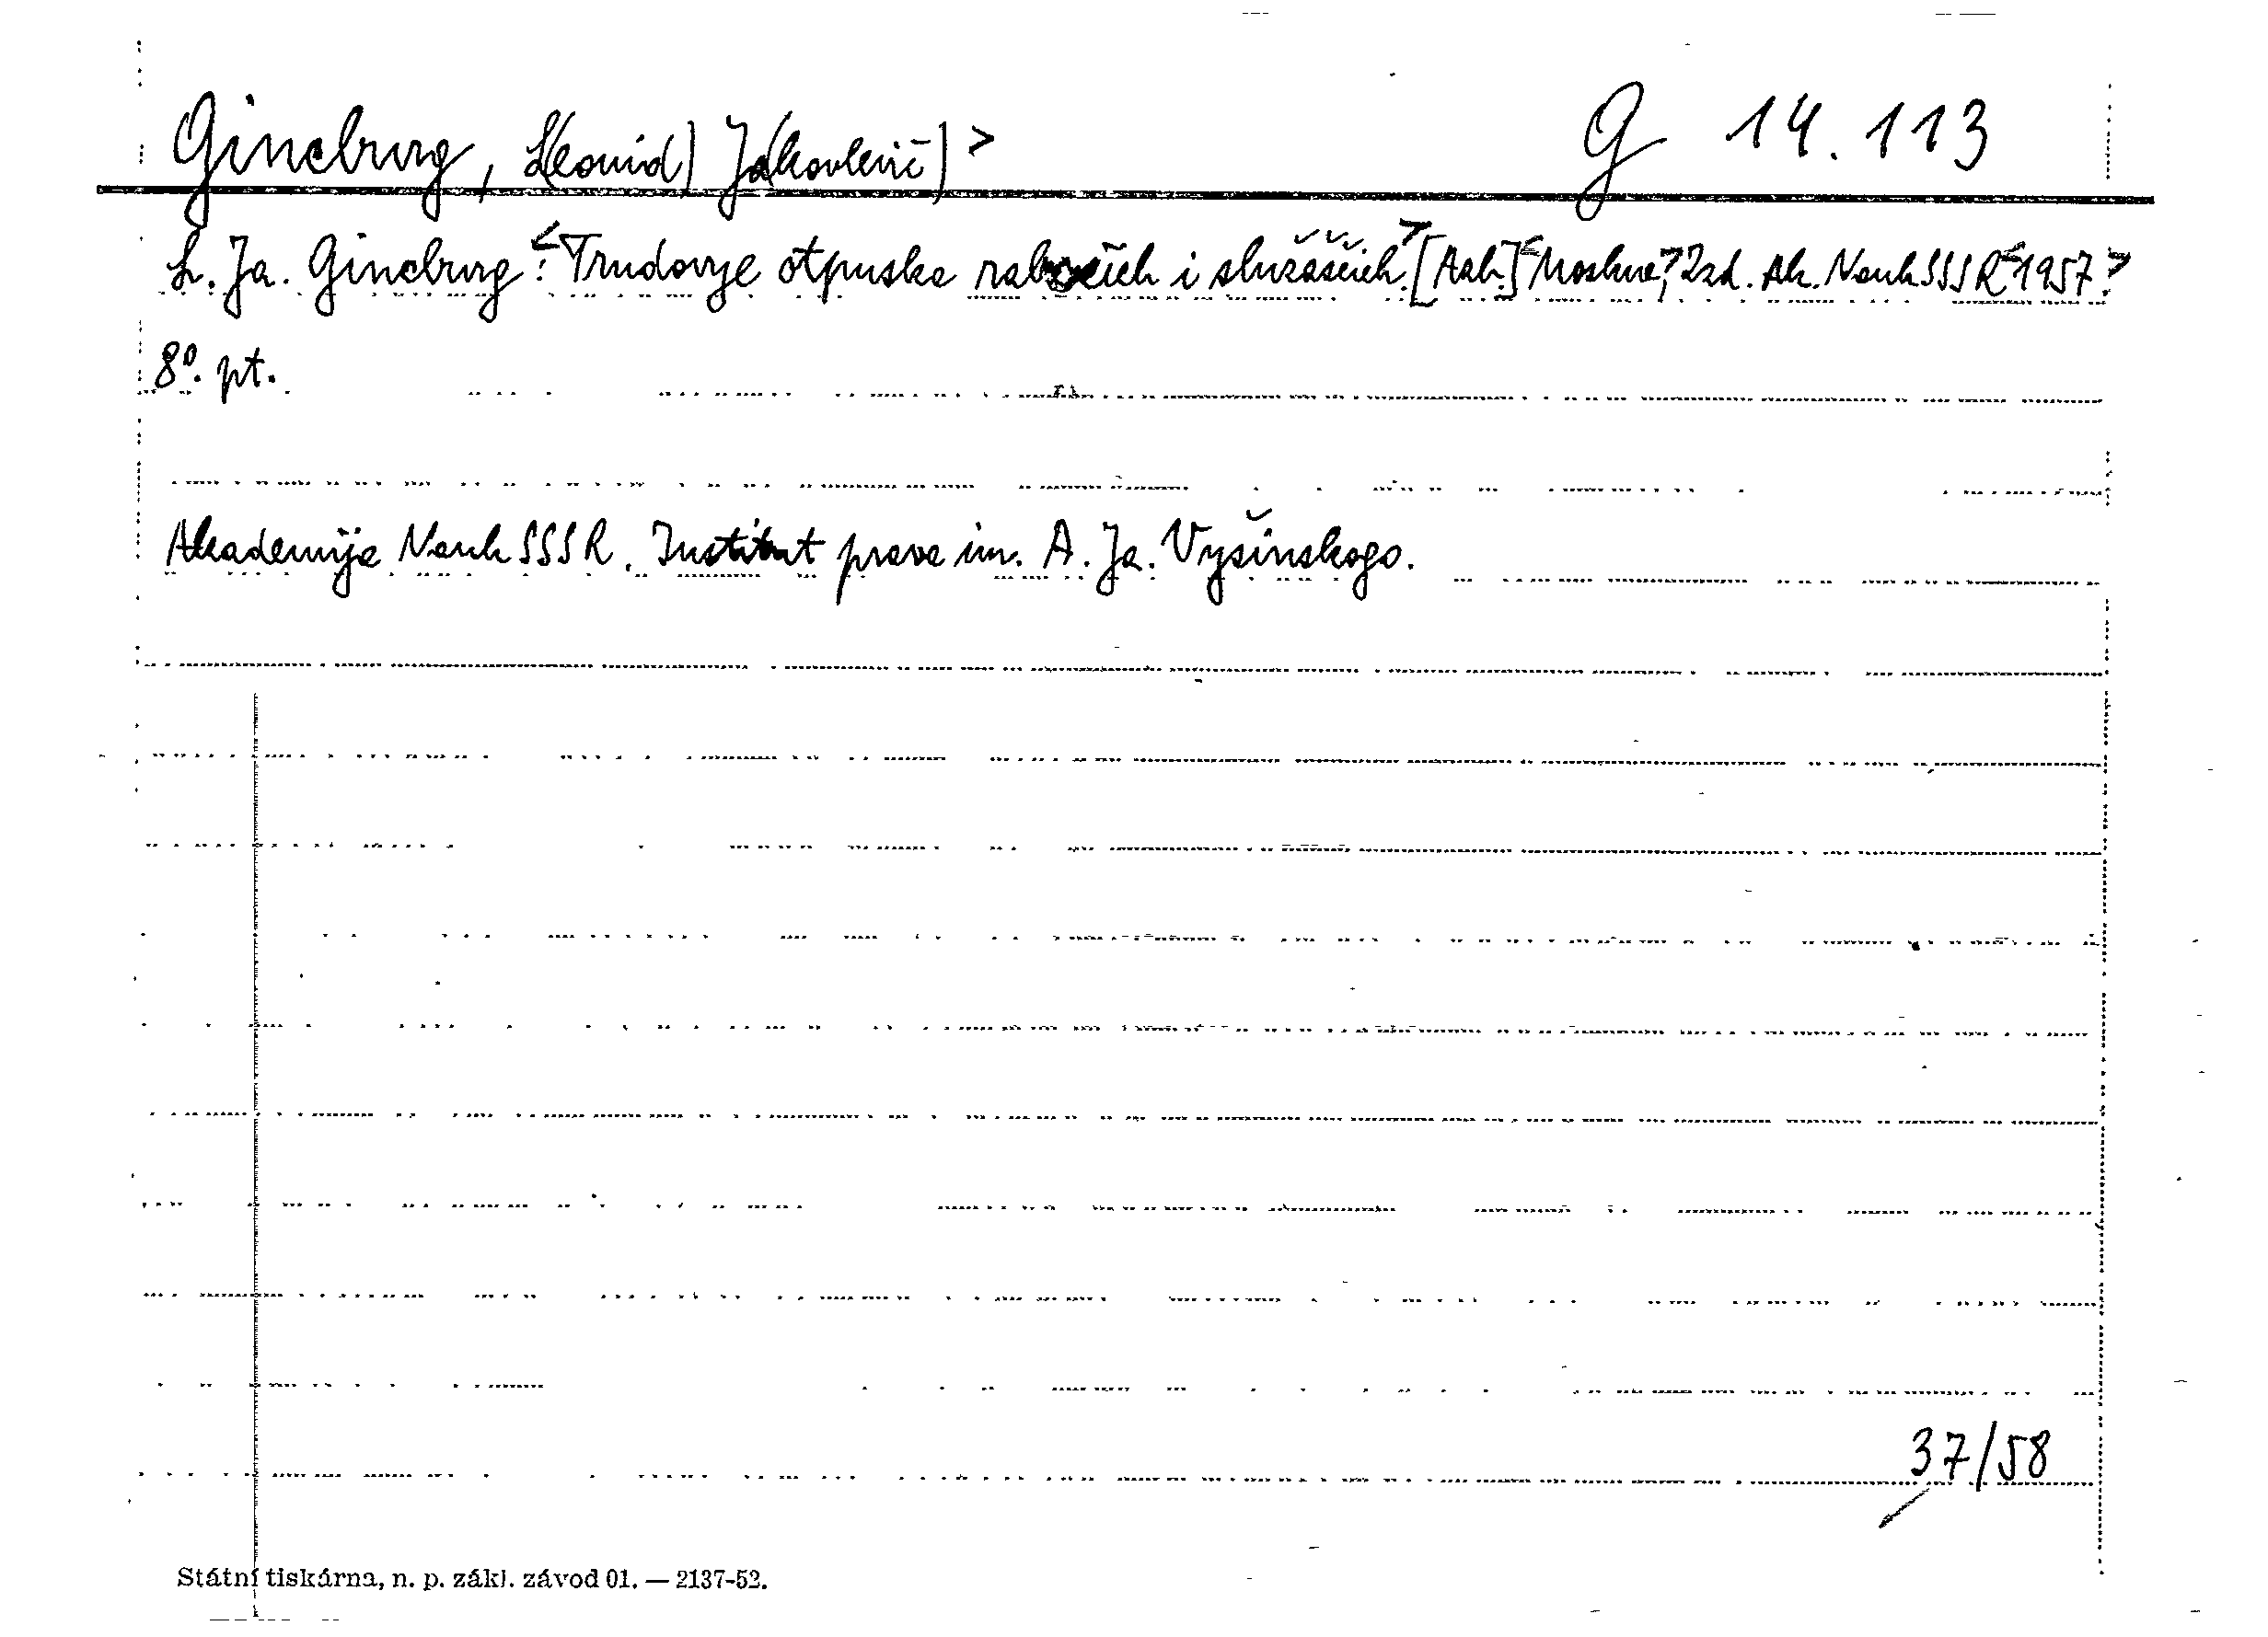 Gincburg, L(eonid) Ja(kovlevič) > G 14.113
L. Ja. Gincburg: <Trudovye otpuska rabočich i služaščich.> [Aah.] <Moskva,> Izd. Ak. Nauk SSSR <1957.>
8°. pt.
Akademija Nauk SSSR. Institut prava im. A. Ja. Vyšinskogo.
37/58
Státní tiskárna, n. p. zákl. závod 01. — 2137-52.